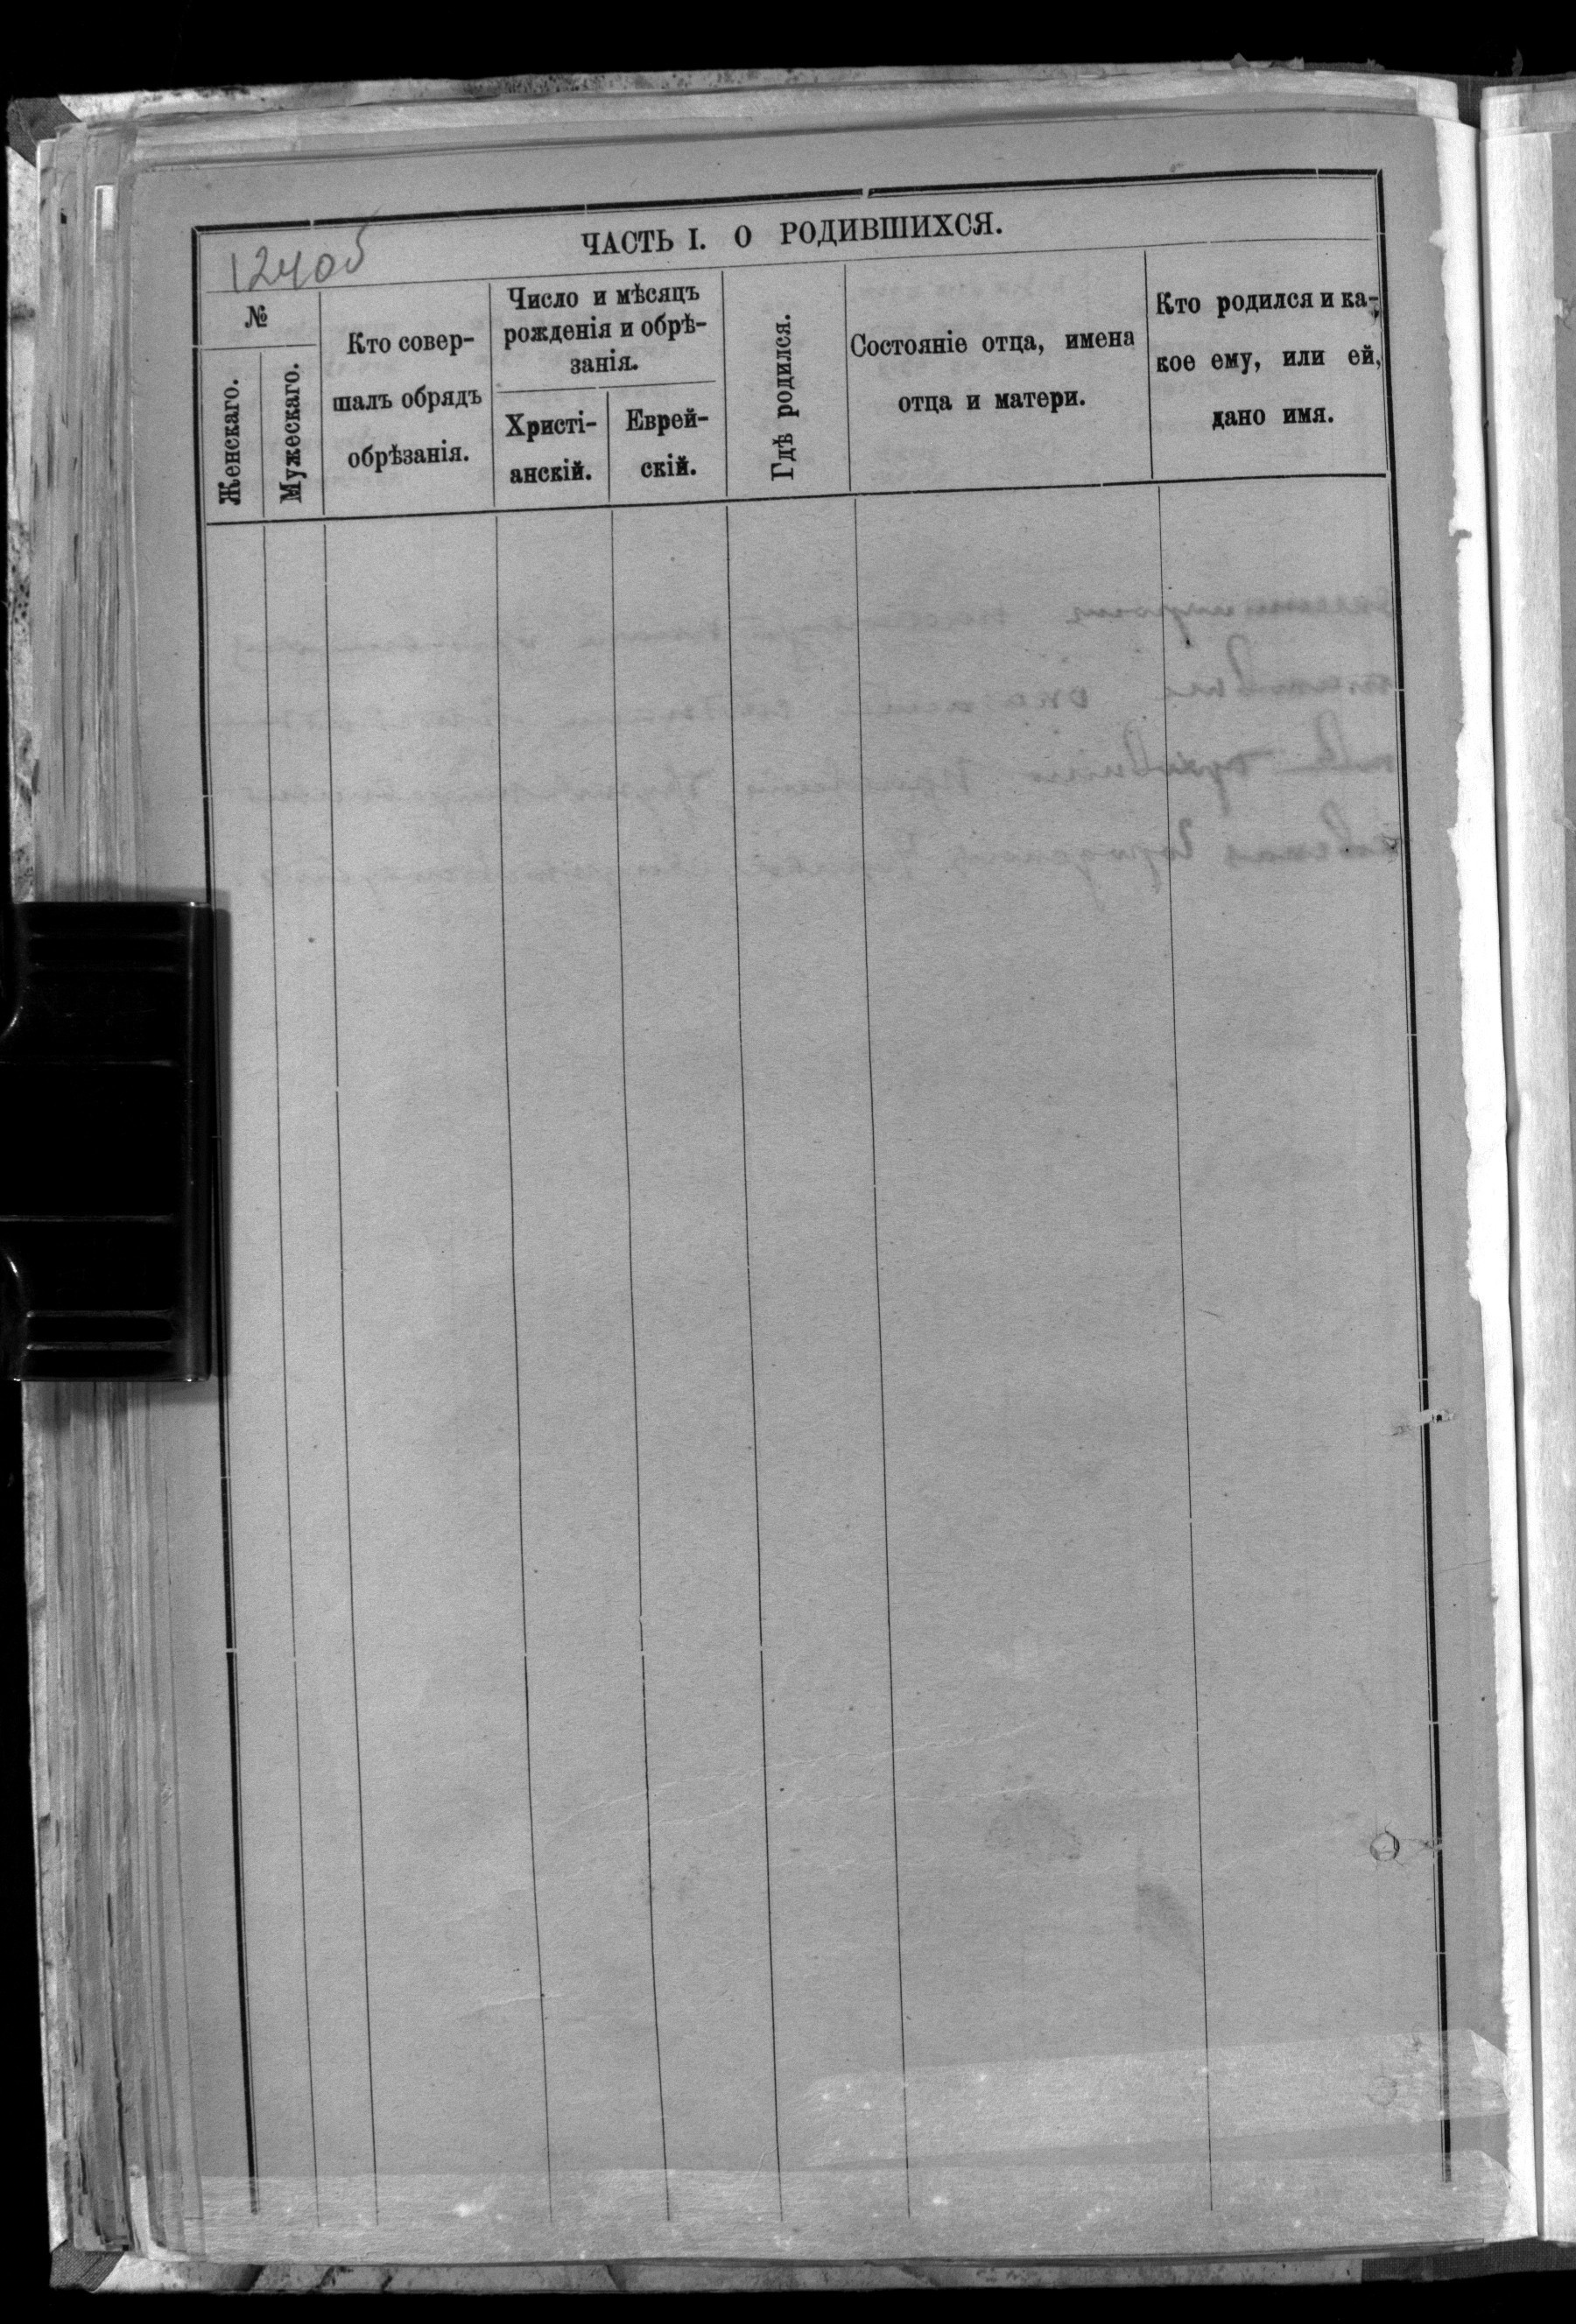 ЧАСТЬ I. О РОДИВШИХСЯ.
124об
№
Женскаго.
Мужескаго.
Кто совер-
шалъ обрядъ
обрѣзанія.
Число и мѣсяцъ
рожденія и обрѣ-
занія.
Христі-
анскій.
Еврей-
скій.
Гдѣ родился.
Состояніе отца, имена
отца и матери.
Кто родился и ка-
кое ему, или ей,
дано имя.